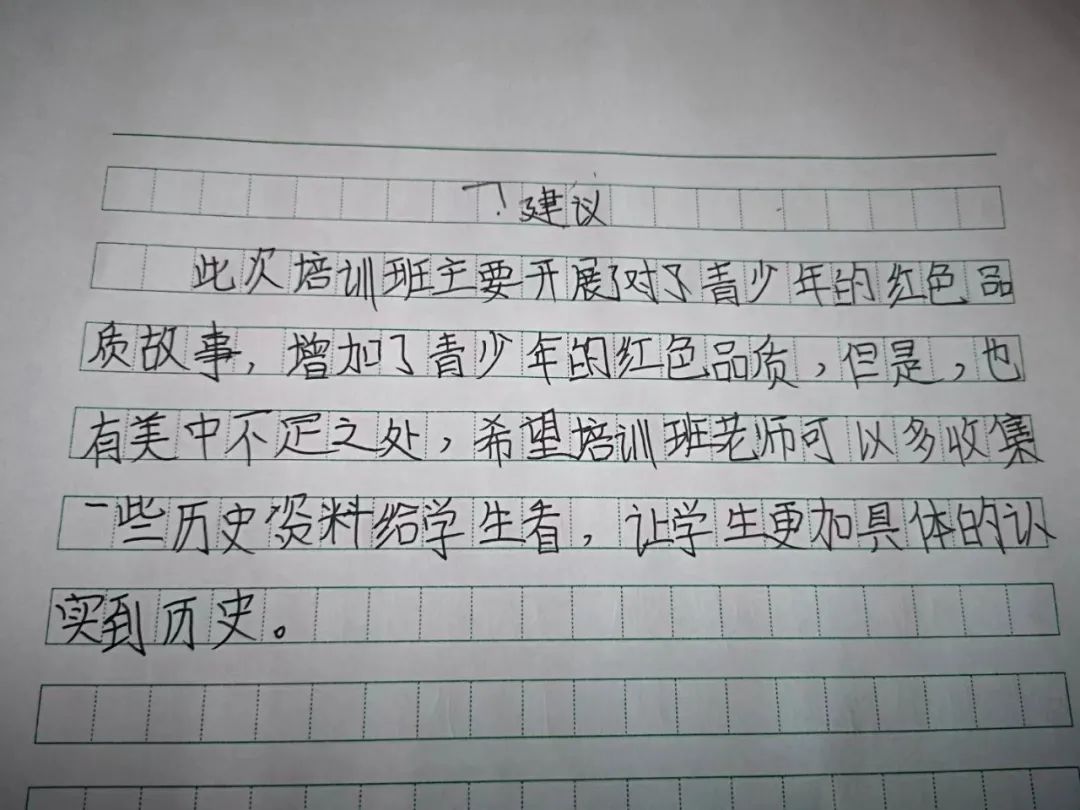 建议
此次培训班主要开展了对了青少年的红色品
质故事，增加了青少年的红色品质，但是，也
有美中不足之处，希望培训班老师可以多收集
一些历史资料给学生看，让学生更加具体的认
实到历史。